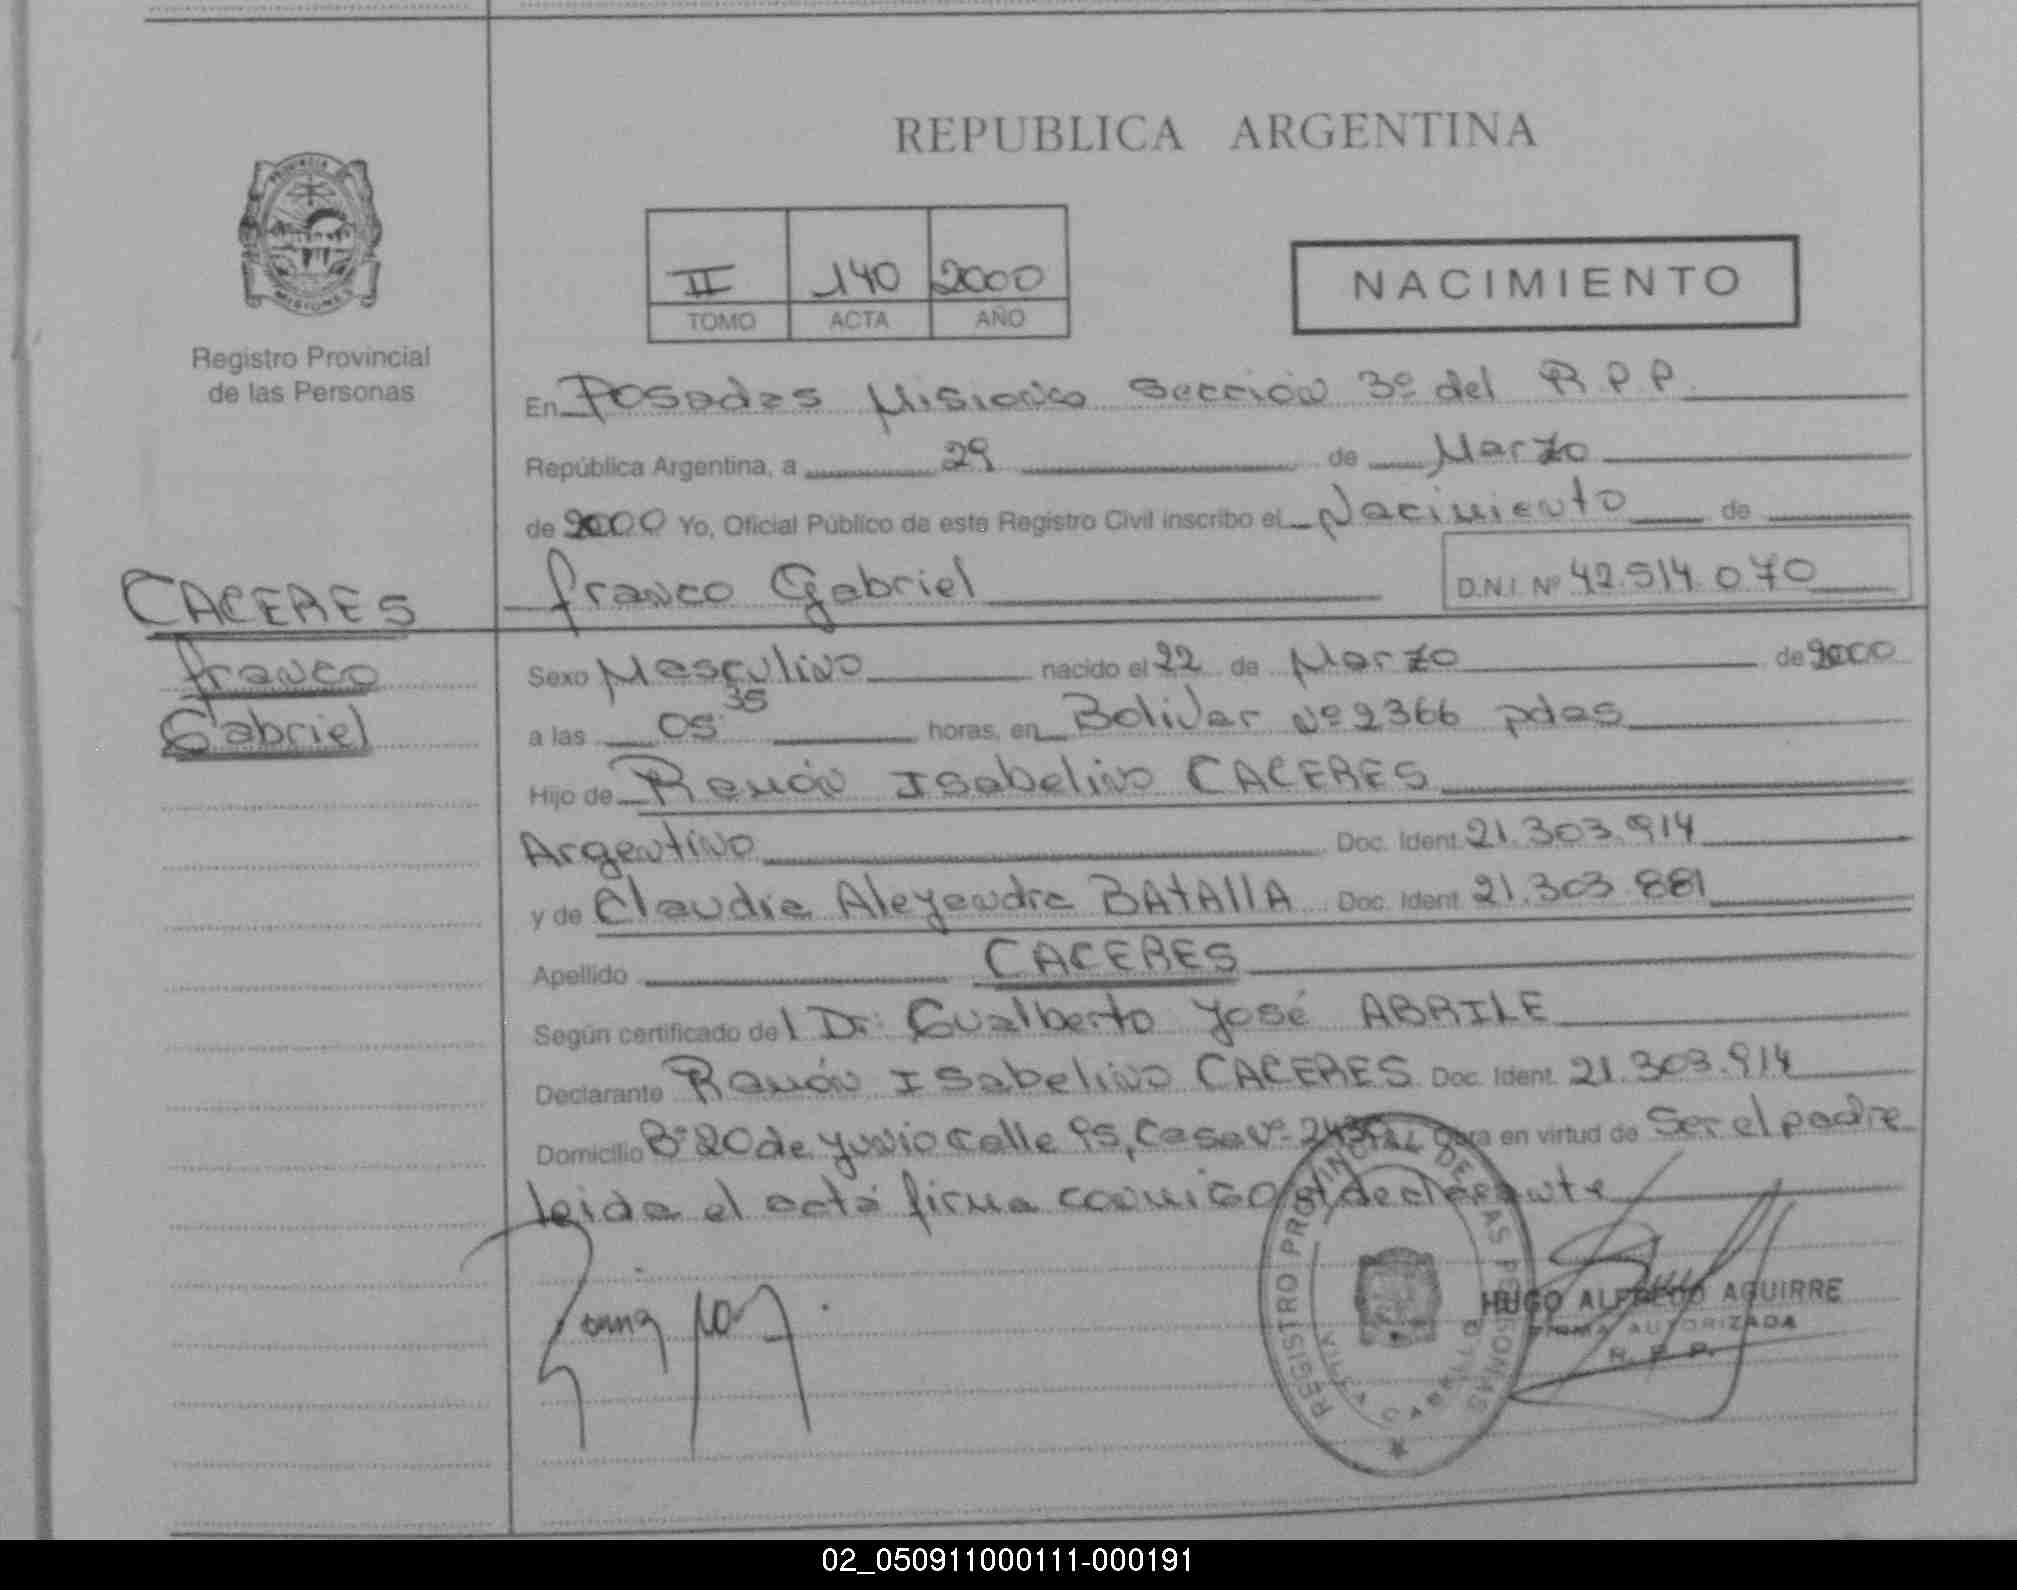 REPUBLICA ARGENTINA
PROVINCIA DE
MISIONES
II 140 2000
TOMO ACTA AÑO
NACIMIENTO
Registro Provincial
de las Personas
En Posadas Misiones Sección 3º del R.P.P.
República Argentina, a 29 de Marzo
de 2000 Yo, Oficial Público de este Registro Civil inscribo el Nacimiento de
Franco Gabriel D.N.I. Nº 42.514.070
CACERES
Franco
Gabriel
Sexo Masculino nacido el 22 de Marzo de 2000
a las 05 35 horas, en Bolivar Nº 2366 pdas
Hijo de Ramón Isabelino CACERES
Argentino Doc. Ident. 21.303.914
y de Claudia Alejandra BATAllA Doc. Ident. 21.303.881
Apellido CACERES
Según certificado del Dr. Gualberto José ABRILE
Declarante Ramón Isabelino CACERES Doc. Ident. 21.303.914
Domicilio Bº 20 de Junio Calle 95, Casa Nº Obra en virtud de Ser el padre
leida el acta firma conmigo el declarante
REGISTRO PROVINCIAL DE LAS PERSONAS
HUGO ALFREDO AGUIRRE
FIRMA AUTORIZADA
R. P. P.
02_050911000111-000191